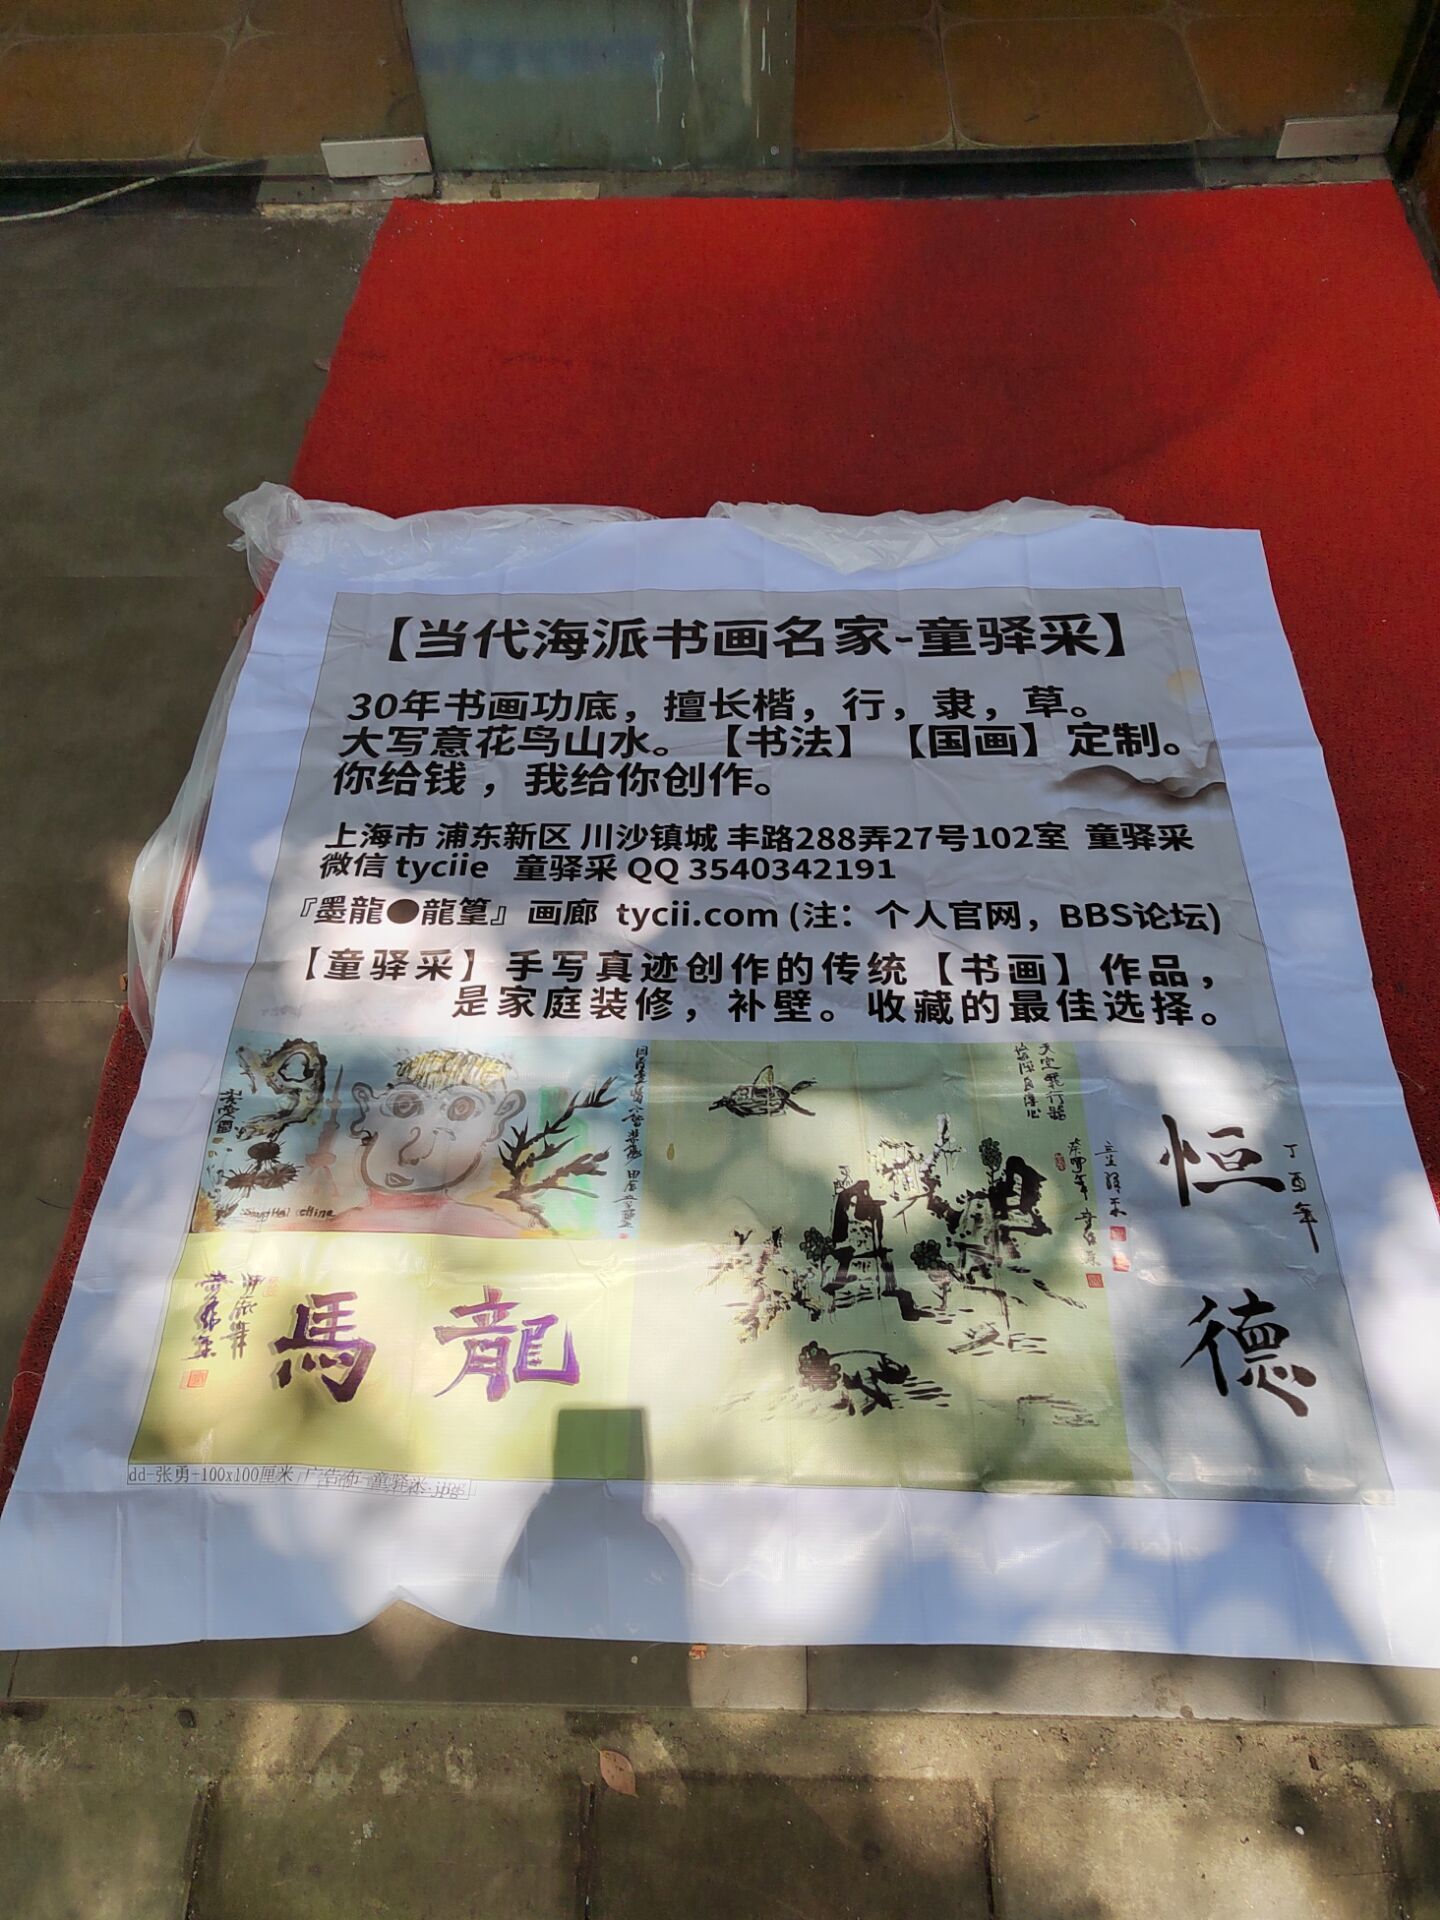 【当代海派书画名家-童驿采】
30年书画功底，擅长楷，行，隶，草。
大写意花鸟山水。【书法】【国画】定制。
你给钱，我给你创作。
上海市 浦东新区 川沙镇城 丰路288弄27号102室 童驿采
微信 tyciie 童驿采 QQ 3540342191
『墨龍●龍篁』画廊 tycii.com (注：个人官网，BBS论坛)
【童驿采】手写真迹创作的传统【书画】作品，
是家庭装修，补壁。收藏的最佳选择。
ShangHai china
天空飛行器
童驿采
丁酉年
恒
德
馬 龍
dd-张勇-100x100厘米 广告布-童驿采.jpg